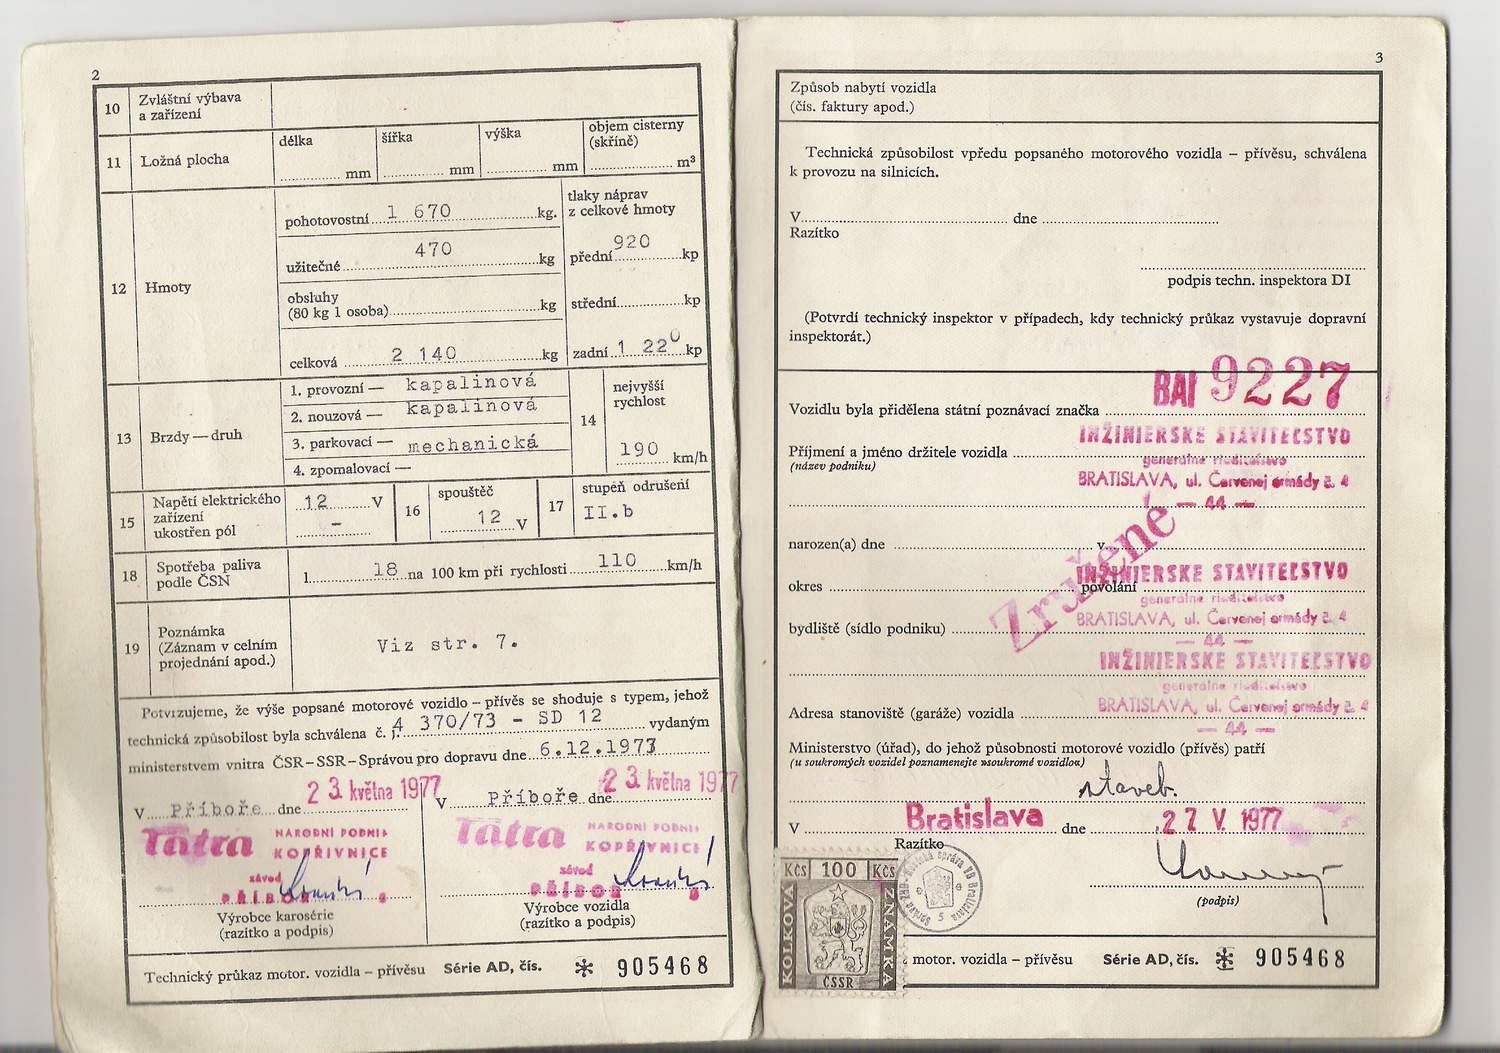 2
10 Zvláštní výbava
a zařízení
11 Ložná plocha délka mm šířka mm výška mm objem cisterny
(skříně) m³
12 Hmoty
pohotovostní 1 670 kg.
užitečné 470 kg
obsluhy
(80 kg 1 osoba) kg
celková 2 140 kg
tlaky náprav
z celkové hmoty
přední 920 kp
střední kp
zadní 1 220 kp
13 Brzdy — druh
1. provozní — kapalinová
2. nouzová — kapalinová
3. parkovací — mechanická
4. zpomalovací —
14 nejvyšší
rychlost
190 km/h
15 Napětí elektrického
zařízení
ukostřen pól
12 V
-
16 spouštěč
12 V
17 stupeň odrušení
II.b
18 Spotřeba paliva
podle ČSN
l 18 na 100 km při rychlosti 110 km/h
19 Poznámka
(Záznam v celním
projednání apod.)
Viz str. 7.
Potvrzujeme, že výše popsané motorové vozidlo – přívěs se shoduje s typem, jehož
technická způsobilost byla schválena č. j. 4 370/73 - SD 12 vydaným
ministerstvem vnitra ČSR – SSR – Správou pro dopravu dne 6.12.1973
V Příboře dne 23. května 1977
V Příboře dne 23. května 1977
Tatra NÁRODNÍ PODNIK
KOPŘIVNICE
závod
PŘÍBOR 8
Výrobce karosérie
(razítko a podpis)
Tatra NÁRODNÍ PODNIK
KOPŘIVNICE
závod
PŘÍBOR 8
Výrobce vozidla
(razítko a podpis)
Technický průkaz motor. vozidla – přívěsu Série AD, čís. * 905468
3
Způsob nabytí vozidla
(čís. faktury apod.)
Technická způsobilost vpředu popsaného motorového vozidla – přívěsu, schválena
k provozu na silnicích.
V dne
Razítko
podpis techn. inspektora DI
(Potvrdí technický inspektor v případech, kdy technický průkaz vystavuje dopravní
inspektorát.)
Vozidlu byla přidělena státní poznávací značka BAI 9227
Příjmení a jméno držitele vozidla
(název podniku)
INŽINIERSKE STAVITEĽSTVO
generálne riaditeľstvo
BRATISLAVA, ul. Červenej armády č. 4
— 44 —
Zrušené
narozen(a) dne v
okres povolání
INŽINIERSKE STAVITEĽSTVO
generálne riaditeľstvo
bydliště (sídlo podniku) BRATISLAVA, ul. Červenej armády č. 4
— 44 —
INŽINIERSKE STAVITEĽSTVO
generálne riaditeľstvo
Adresa stanoviště (garáže) vozidla BRATISLAVA, ul. Červenej armády č. 4
— 44 —
Ministerstvo (úřad), do jehož působnosti motorové vozidlo (přívěs) patří
(u soukromých vozidel poznamenejte »soukromé vozidlo«)
staveb.
V Bratislava dne 27. V. 1977
Razítko
(podpis)
Kčs 100 Kčs
KOLKOVÁ ZNÁMKA
ČSSR
motor. vozidla – přívěsu Série AD, čís. * 905468